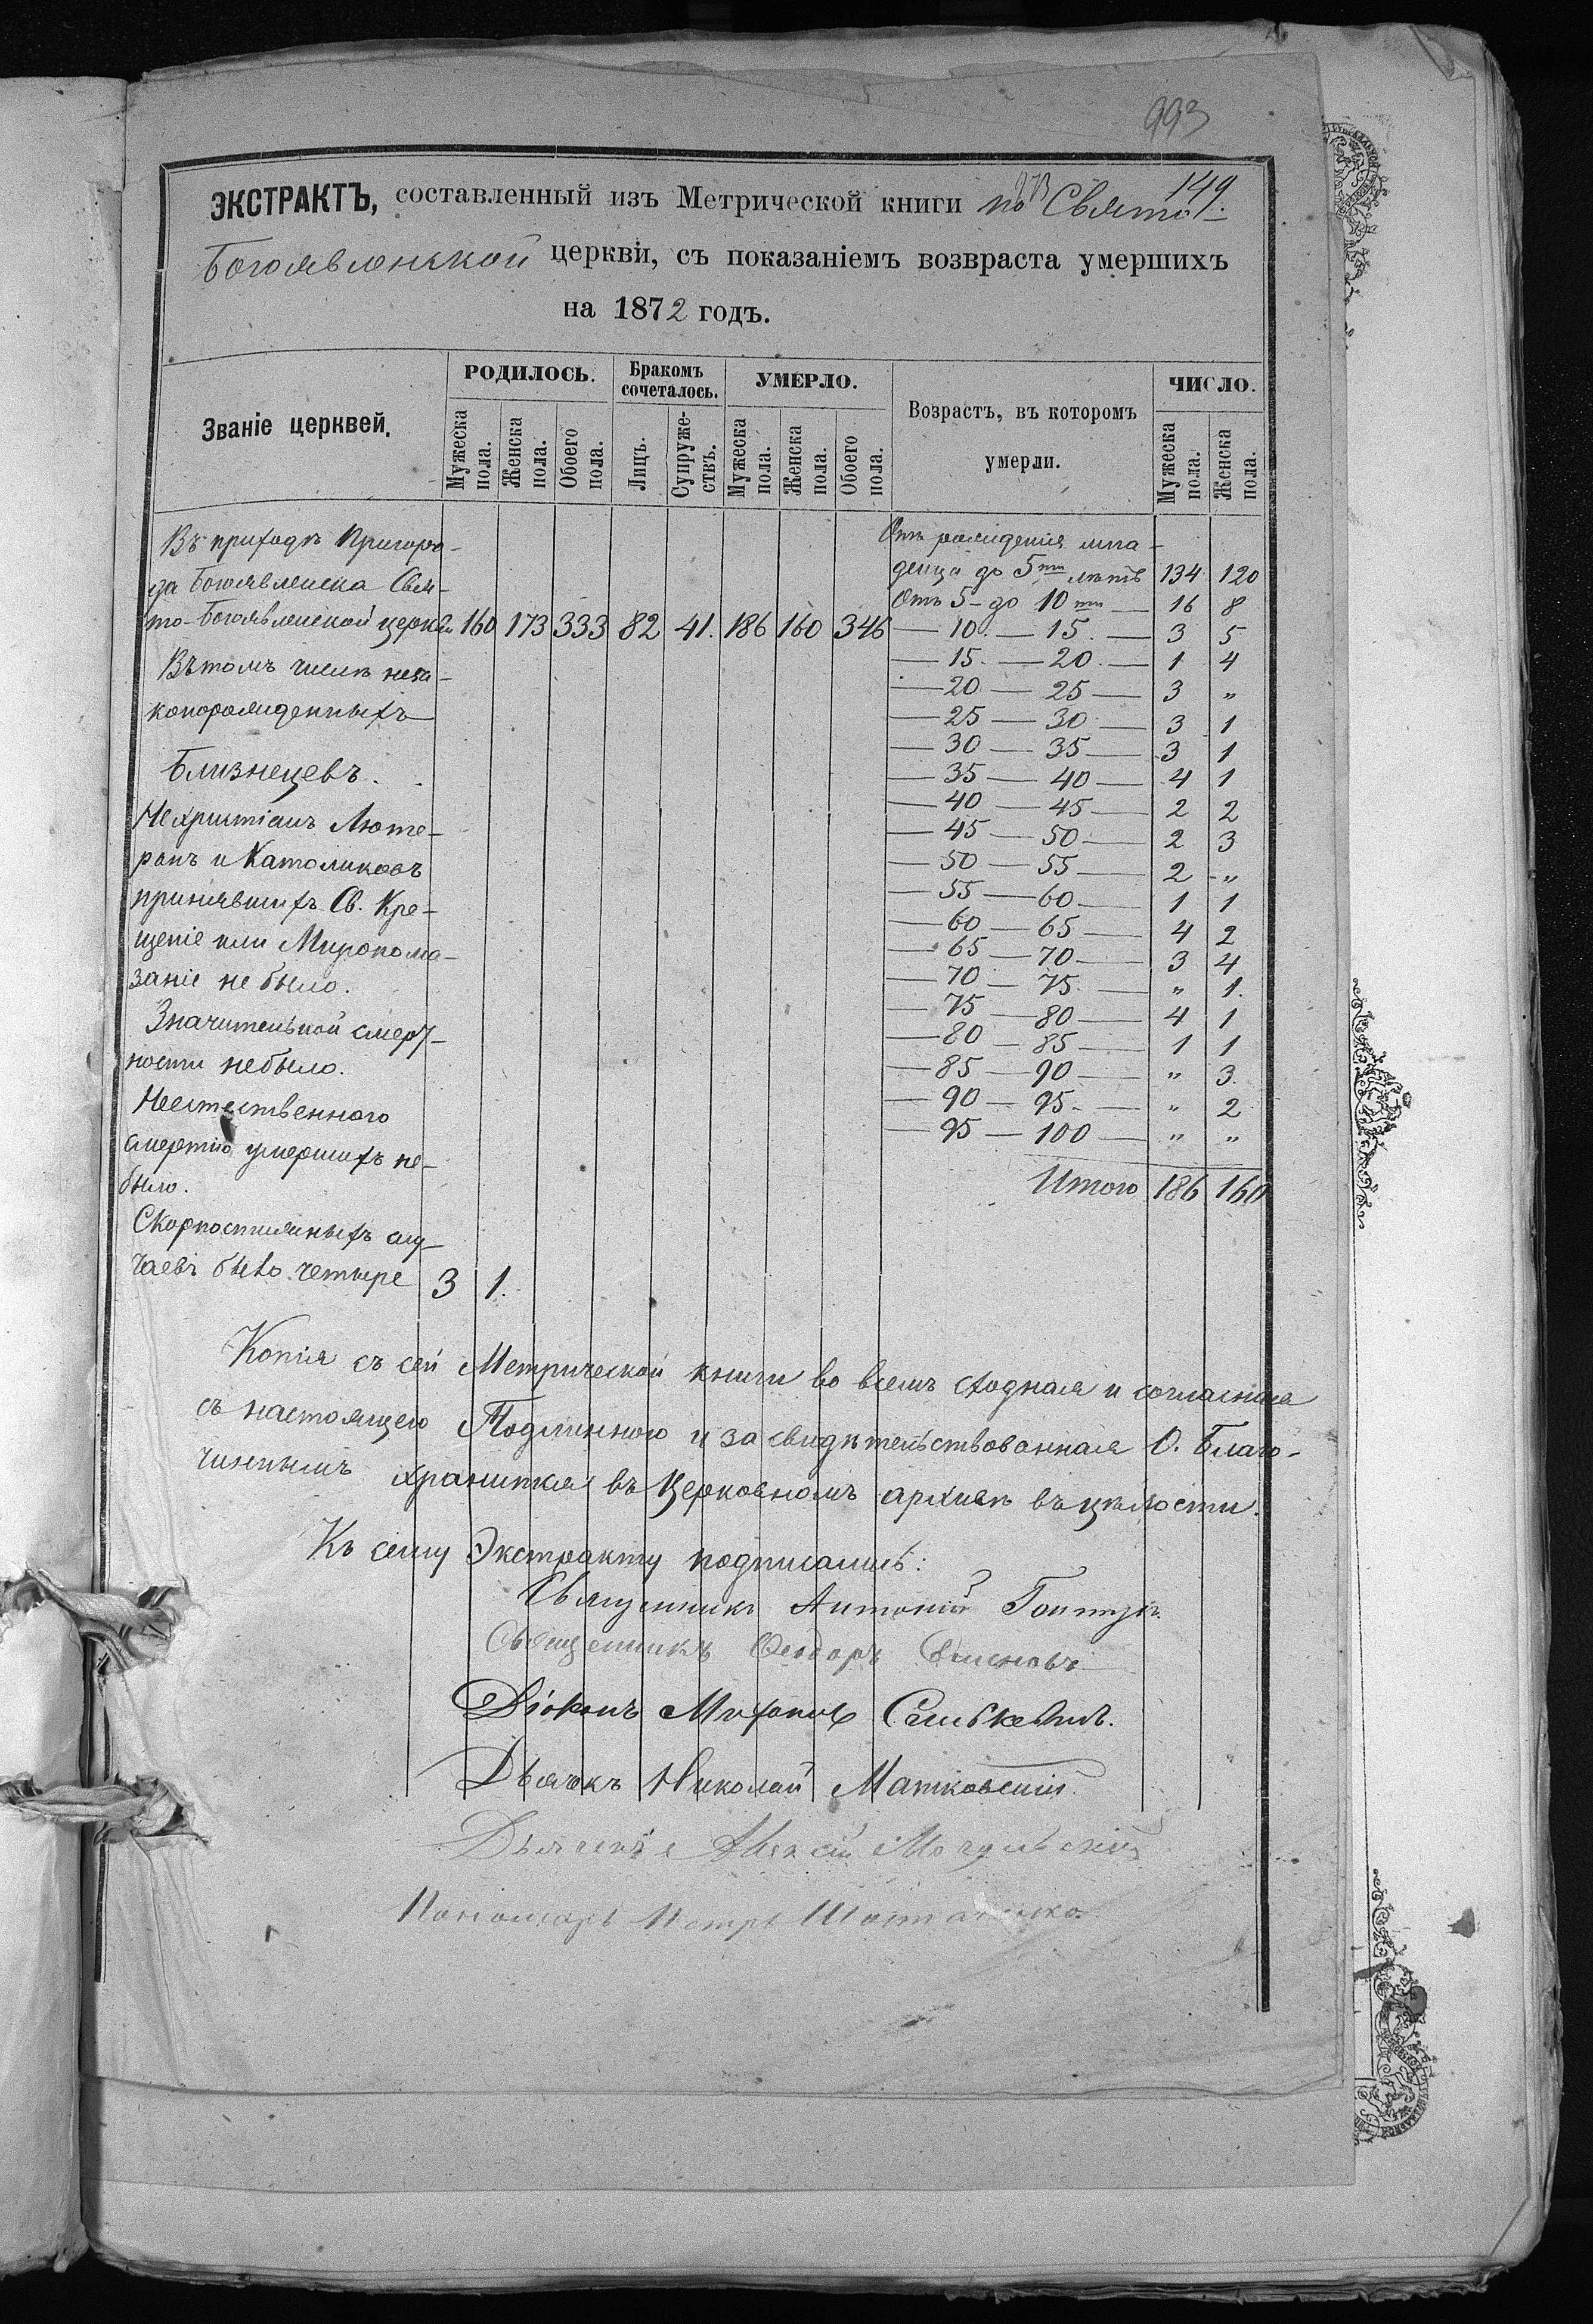 993
149.
ЭКСТРАКТЪ, составленный изъ Метрической книги по Свято-
Богоявленской церкви, съ показаніемъ возвраста умершихъ
на 1872 годъ.
Званіе церквей.
РОДИЛОСЬ.
Бракомъ сочеталось.
УМЕРЛО.
Возрастъ, въ которомъ умерли.
ЧИСЛО.
Мужеска пола.
Женска пола.
Обоего пола.
Лицъ.
Супружествъ.
Мужеска пола.
Женска пола.
Обоего пола.
Мужеска пола.
Женска пола.
Въ приходѣ Пригоро-
да Богоявленска Свя-
то-Богоявленской церкви 160 173 333 82 41. 186 160 346
Въ томъ числѣ неза-
конорожденныхъ
Близнецевъ.
Нехристіанъ Люте-
ранъ и Католиковъ
принявшихъ Св. Кре-
щеніе или Миропома-
заніе не было.
Значительной смерт-
ности небыло.
Неестественного
смертію умершихъ не-
было.
Скоропостижныхъ слу-
чаевъ было четыре 3 1.
Отъ рожденія мла-
денца до 5ти лѣтъ 134 120
Отъ 5 - до 10ти — 16 8
— 10. — 15. — 3 5
— 15. — 20. — 1 4
— 20 — 25 — 3 „
— 25 — 30 — 3 1
— 30 — 35 — 3 1
— 35 — 40 — 4 1
— 40 — 45 — 2 2
— 45 — 50 — 2 3
— 50 — 55 — 2 „
— 55 — 60 — 1 1
— 60 — 65 — 4 2
— 65 — 70 — 3 4
— 70 — 75 — „ 1.
— 75 — 80 — 4 1
— 80 — 85 — 1 1
— 85 — 90 — „ 3.
— 90 — 95. — „ 2
— 95 — 100 — „ „
Итого 186 160
Копія съ сей Метрической книги во всемъ сходная и согласная
съ настоящего Подлинного и засвидѣтельствованная О. Благо-
чиннымъ хранится въ Церковномъ архивѣ въ цѣлости.
Къ сему Экстракту подписались:
Священникъ Антоній
Священникъ Феодоръ
Діаконъ
Дьячокъ Николай Матковскій
Дьячекъ Алексій
Пономарь Петръ